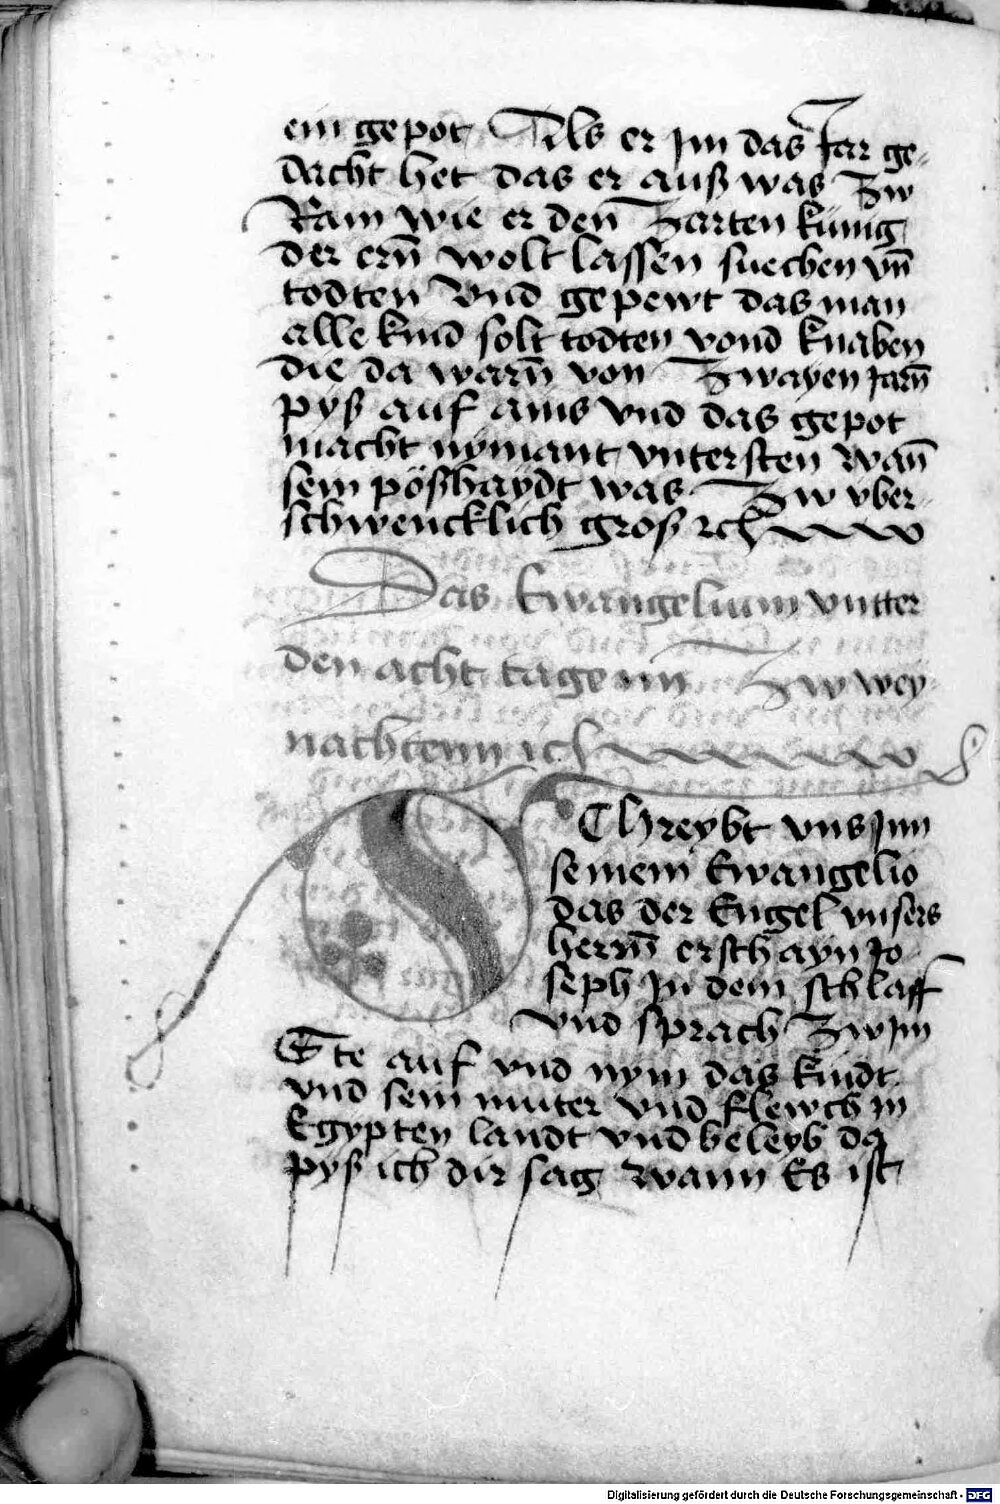 ein gepot Als er jm das Jar ge-
dacht het das er auß was zw
Ram wie er den zarten kunig
der ern̄ wolt lassen suechen vn̄
todten Vnd gepewt das man
alle kind solt todten vond knaben
die da warn̄ von zwayen jarn̄
pyß auf ains vnd das gepot
macht nymant vntersten wan̄
sein pößhaydt was zw vber-
schwencklich groß rch
Das Ewangelium vntter
den acht tagenn zw wey-
nachtenn rch
S Chreybt vns jnn
seinem Ewangelio
das der Engel vnsers
herrn̄ erschayn Jo-
seph jn dem schlaff
vnd sprach zw jm
Ste auf vnd nym das kindt
vnd sein muter vnd flewch in
Egypten landt vnd beleyb da
pyß ich dir sag wann Es ist
Digitalisierung gefördert durch die Deutsche Forschungsgemeinschaft - DFG